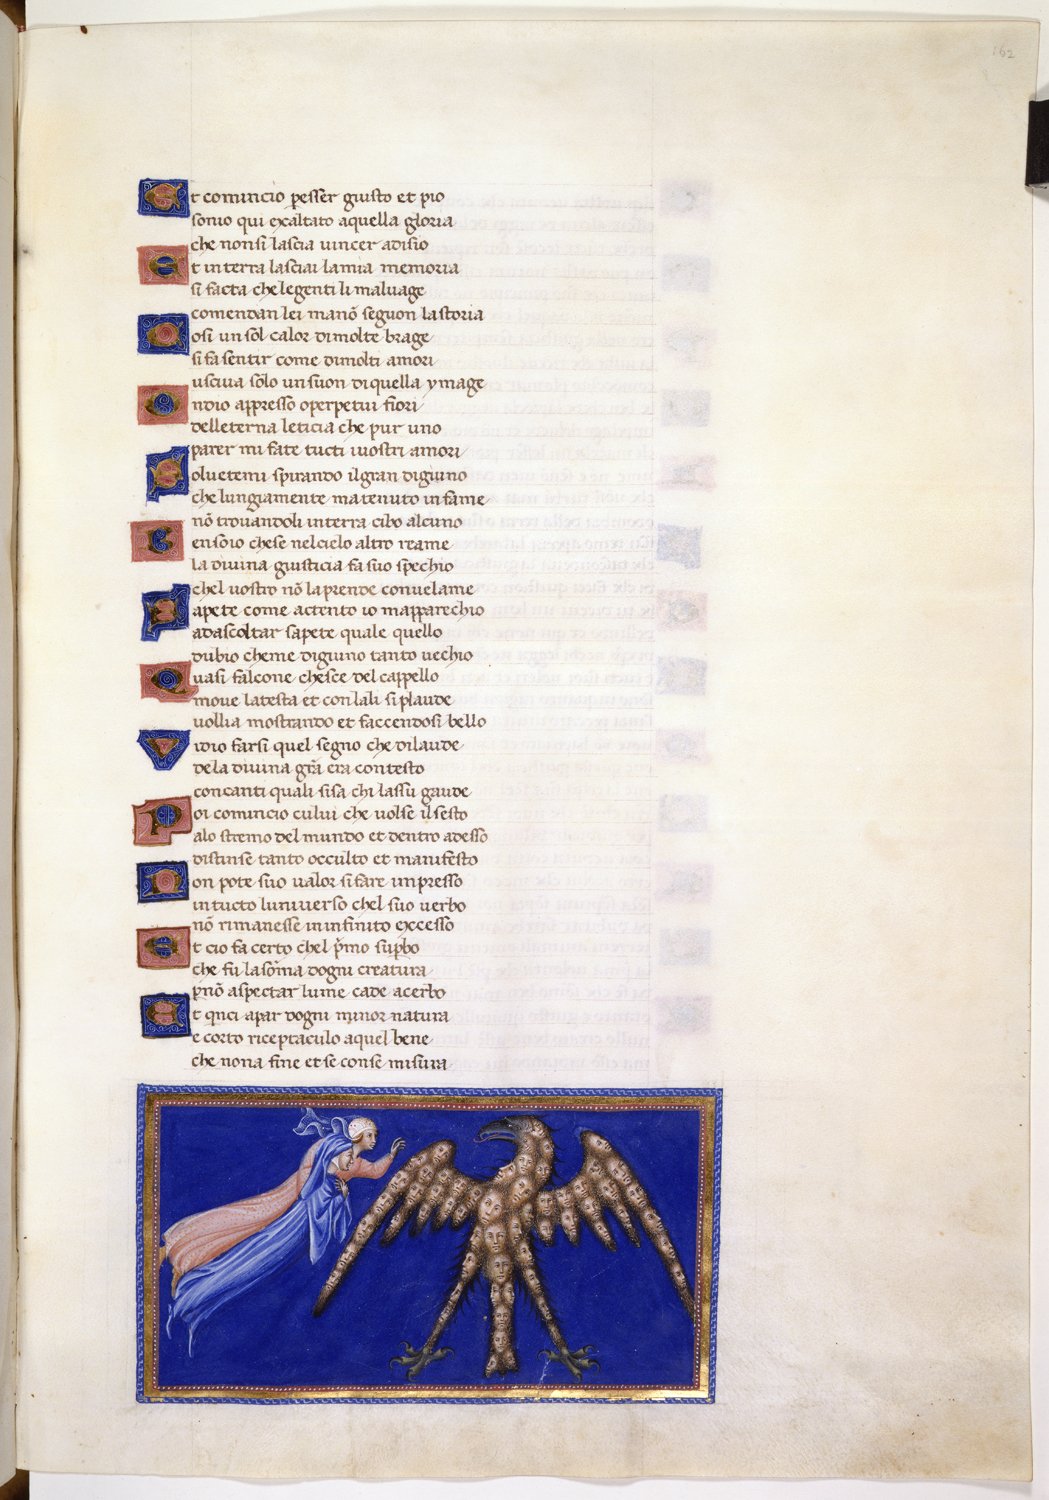 162
Et comincio p̱esser giusto et pio
sonio qui exaltato aquella gloria
che nonsi lascia uincer adisio
Et interra lasciai lamia memoria
si facta chelegenti li maluage
comendan lei manō seguon lastoria
Cosi unsol calor dimolte brage
sifasentir come dimolti amori
usciua solo unsuon diquella ymage
Ondio appresso operpetui fiori
delleterna leticia che pur uno
parer mi fate tucti iuostri amori
Soluetemi spirando ilgran digiuno
che lungiamente matenuto infame
nō trouandoli interra cibo alcuno
Ben soio chese nelcielo altro reame
la diuina giusticia fasuo spechio
chel uostro nō laprende conuelame
Sapete come actento io mapparechio
adascoltar sapete quale quello
dubio cheme digiuno tanto uechio
Quasi falcone chesce del cappello
moue latesta et conlali siplaude
uollia mostrando et faccendosi bello
Vidio farsi quel segno che dilaude
dela diuina grā era contesto
concanti quali sisa chi lassu gaude
Poi comincio cului che uolse ilsesto
alo stremo del mundo et dentro adesso
distinse tanto occulto et manifesto
Non pote suo ualor sifare impresso
intucto luniuerso chel suo uerbo
nō rimanesse ininfinito excesso
Et cio fa certo chel p̄mo sup̱bo
che fu lasōma dogni creatura
p̱nō aspectar lume cade acerbo
Et qnci apar dogni minor natura
e corto riceptaculo aquel bene
che nona fine et se conse misura